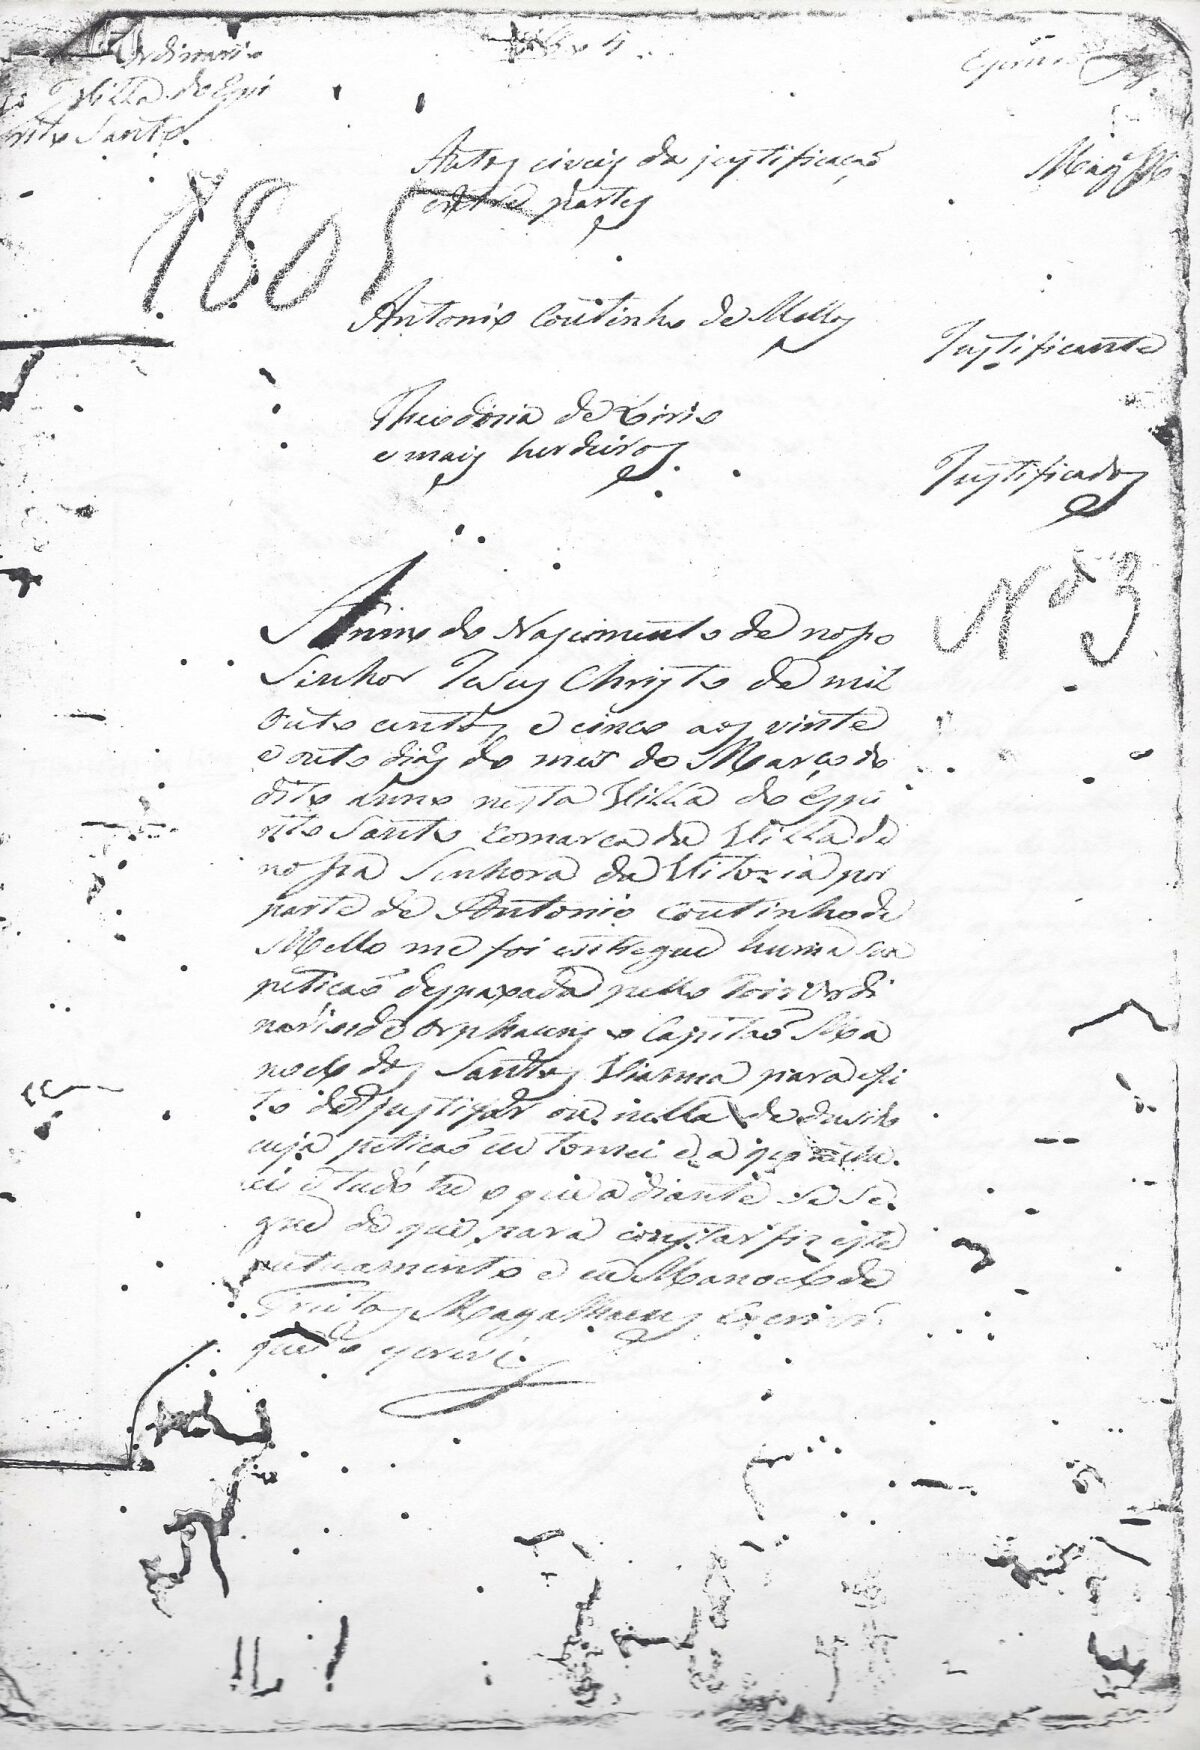 Ordinario
Villa do Espi
rito Santo.
Mages
Autos civeis da justificação
entre partes
1805
Antonio Coutinho de Mello
Justificante
Theodozia de
e mais herdeiros
Justificados
Nº 3
Anno do Nascimento de nosso
Senhor Jesus Christo de mil
outo centos e cinco aos vinte
e outo dias do mes de Março do
dito anno nesta Villa do Espi
rito Santo Comarca da Villa de
nossa Senhora da Vitoria por
parte de Antonio Coutinho de
Mello me foi entregue huma sua
petição despaxada pello Juis Ordi
nario e de Orphauns o Capitão Ma
noel dos Santos Vianna para efei
to de justificar o nella dedusido
cuja petição eu tomei e a
e tudo he o que adiante se se
gue de que para constar fiz este
autuamento e eu Manoel de
Freitas Magalhaens Escrivão
que o escrevi.